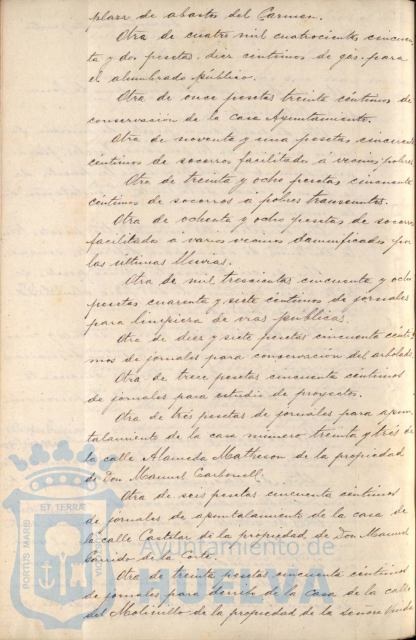 plaza de abastos del Carmen.
Otra de cuatro mil cuatrocientas cincuen-
ta y dos pesetas diez céntimos de gas para
el alumbrado público.
Otra de once pesetas treinta céntimos de
conservación de la casa Ayuntamiento.
Otra de noventa y una pesetas cincuenta
céntimos de socorros facilitados a vecinos pobres
Otra de treinta y ocho pesetas cincuenta
céntimos de socorros a pobres transeuntes.
Otra de ochenta y ocho pesetas de socorros
facilitados a varios vecinos damnificados por
las últimas lluvias.
Otra de mil trescientas cincuenta y ocho
pesetas cuarenta y siete céntimos de jornales
para limpieza de vias públicas.
Otra de diez y siete pesetas cincuenta cénti-
mos de jornales para conservación del arbolado
Otra de trece pesetas cincuenta céntimos
de jornales para estudio de proyectos.
Otra de tres pesetas de jornales para apun-
talamiento de la casa numero treinta y tres de
la calle Alameda Matheson de la propiedad
de Don Manuel Carbonell.
Otra de seis pesetas cincuenta céntimos
de jornales de apuntalamiento de la casa de
la calle Castelar de la propiedad de Don Manuel
Garrido de la Corte.
Otra de treinta pesetas cincuenta céntimos
de jornales para derribo de la casa de la calle
del Molinillo de la propiedad de la señora
PORTUS MARIS ET TERRAE
Ayuntamiento de
HUELVA